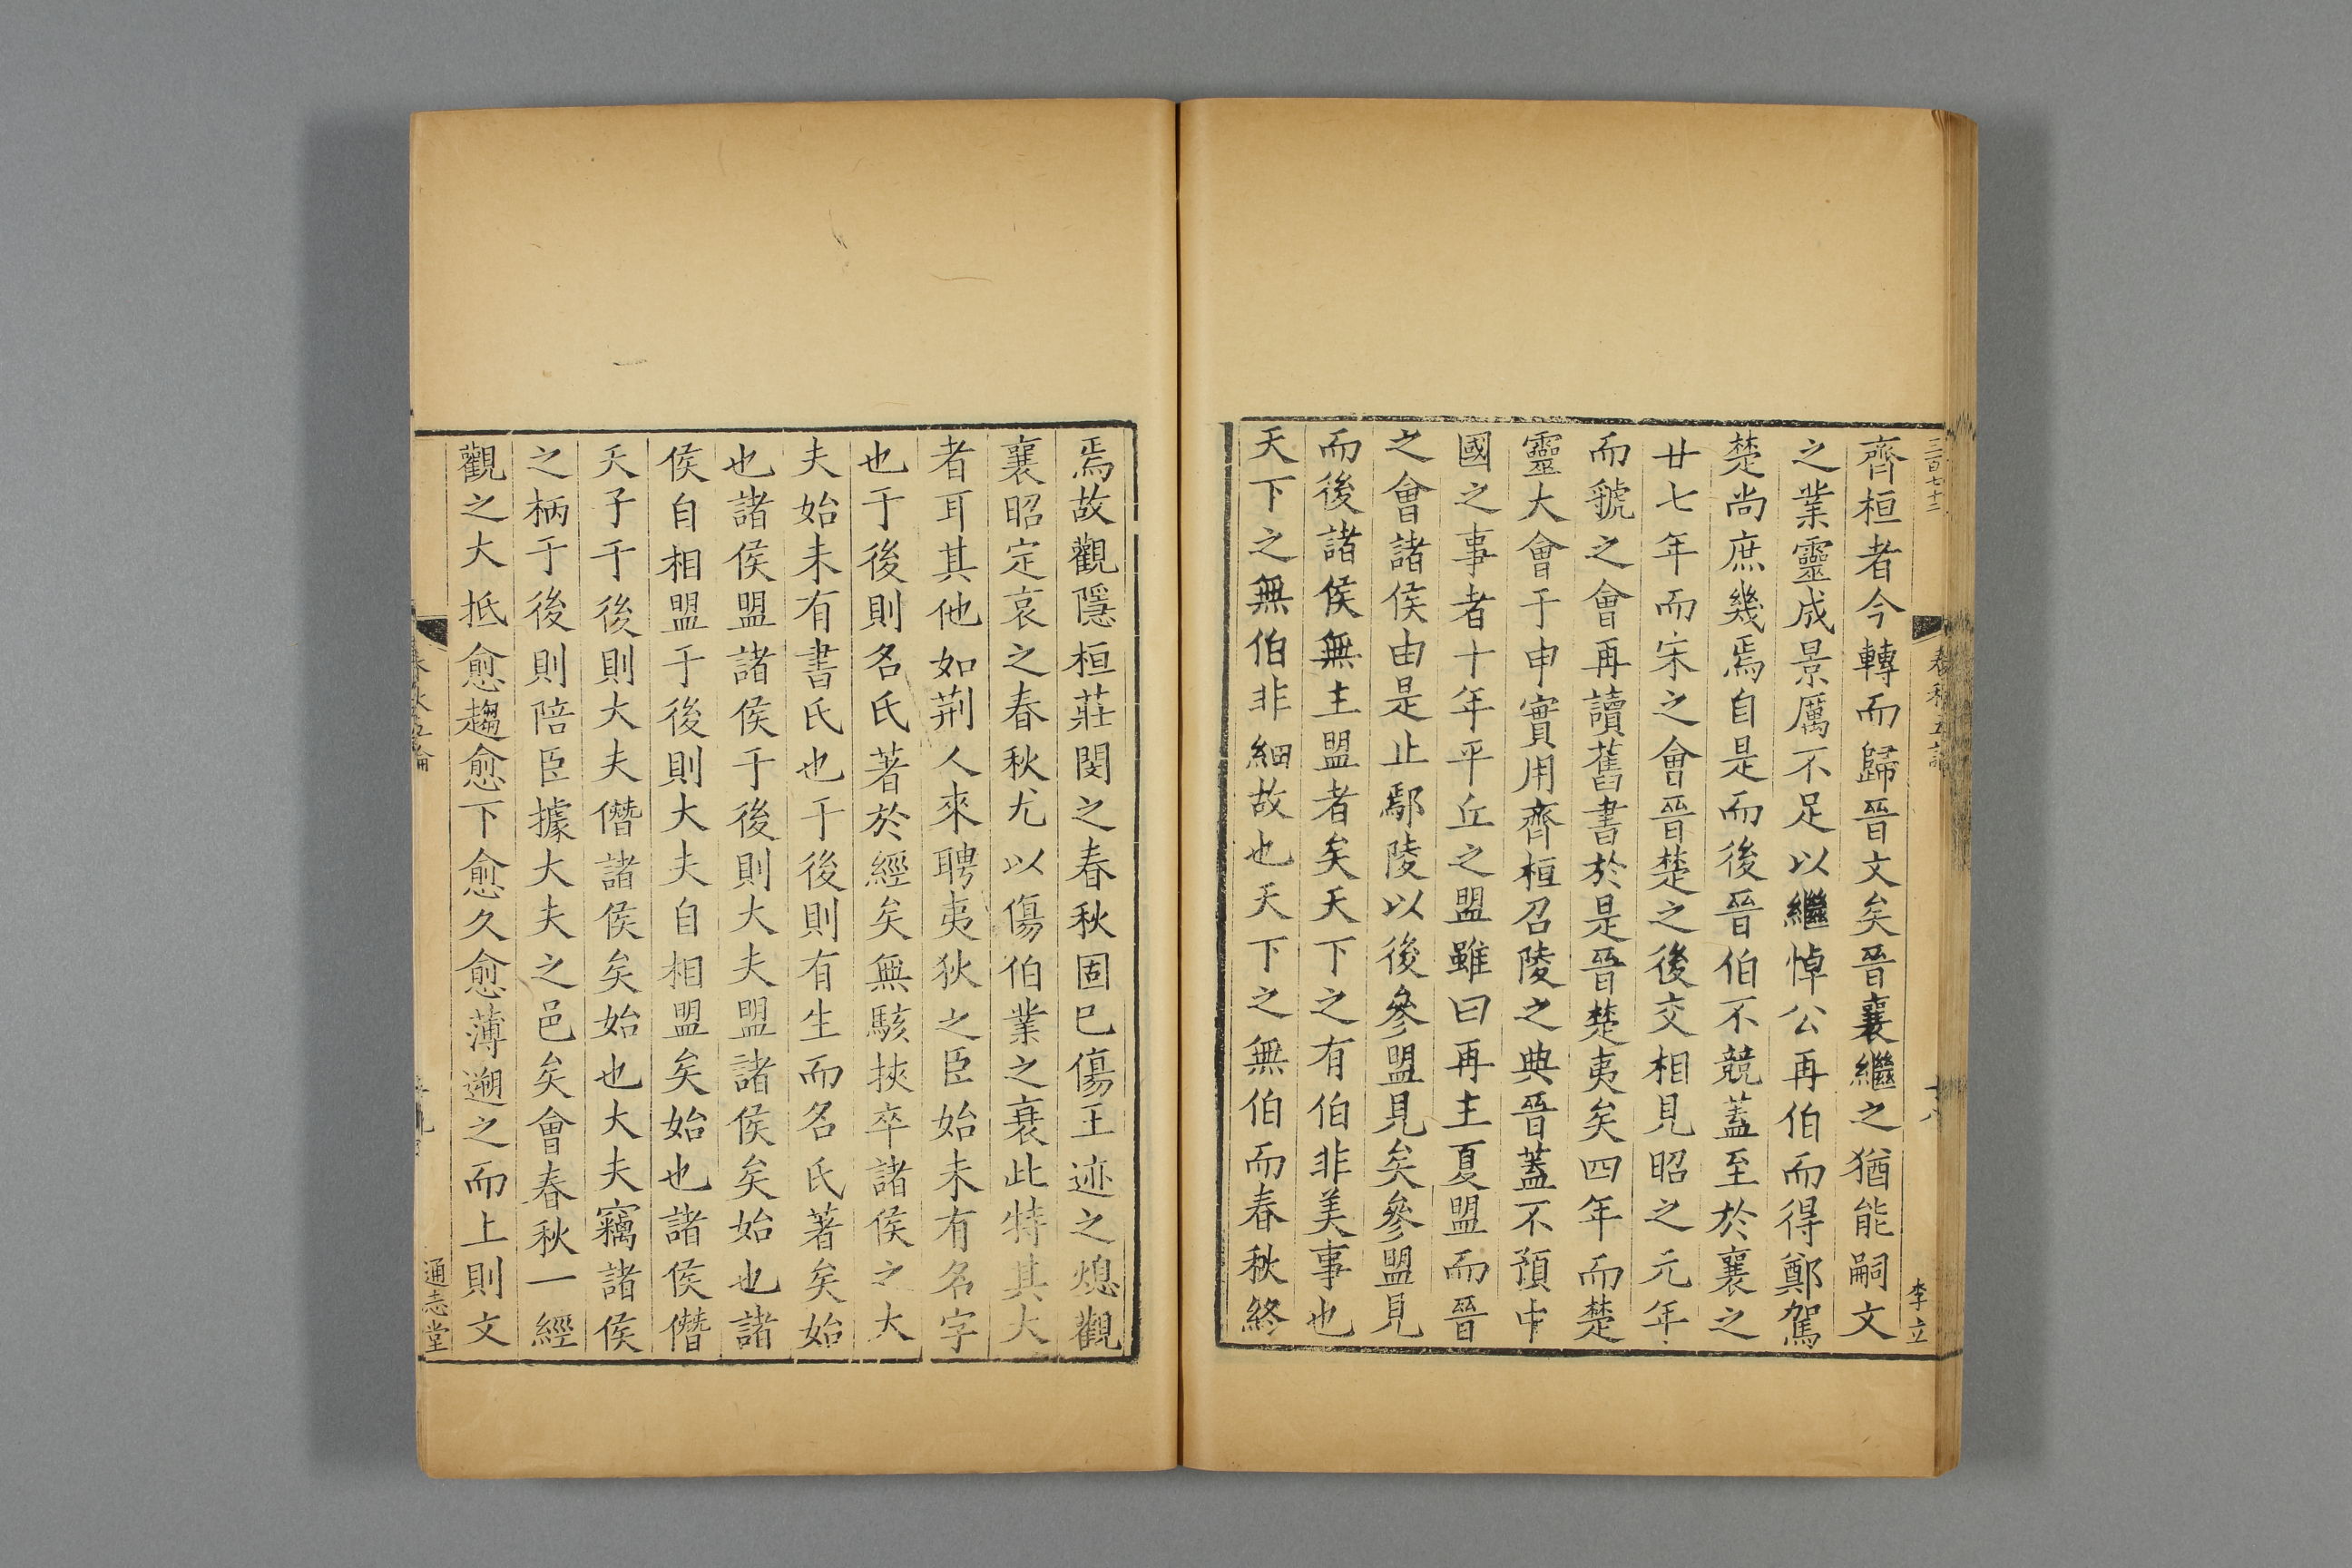 三百七十三
春秋五論
十八
李立
齊桓者今轉而歸晉文矣晉襄繼之猶能嗣文
之業靈成景厲不足以繼悼公再伯而得鄭駕
楚尚庶幾焉自是而後晉伯不競蓋至於襄之
廿七年而宋之會晉楚之後交相見昭之元年
而虢之會再讀舊書於是晉楚夷矣四年而楚
靈大會于申實用齊桓召陵之典晉蓋不預中
國之事者十年平丘之盟雖曰再主夏盟而晉
之會諸侯由是止鄢陵以後參盟見矣參盟見
而後諸侯無主盟者矣天下之有伯非美事也
天下之無伯非細故也天下之無伯而春秋終
焉故觀隱桓莊閔之春秋固巳傷王迹之熄觀
襄昭定哀之春秋尤以傷伯業之衰此特其大
者耳其他如荆人來聘夷狄之臣始未有名字
也于後則名氏著於經矣無駭挾卒諸侯之大
夫始未有書氏也于後則有生而名氏著矣始
也諸侯盟諸侯于後則大夫盟諸侯矣始也諸
侯自相盟于後則大夫自相盟矣始也諸侯僭
天子于後則大夫僭諸侯矣始也大夫竊諸侯
之柄于後則陪臣據大夫之邑矣會春秋一經
觀之大抵愈趨愈下愈久愈薄遡之而上則文
春秋五論
通志堂